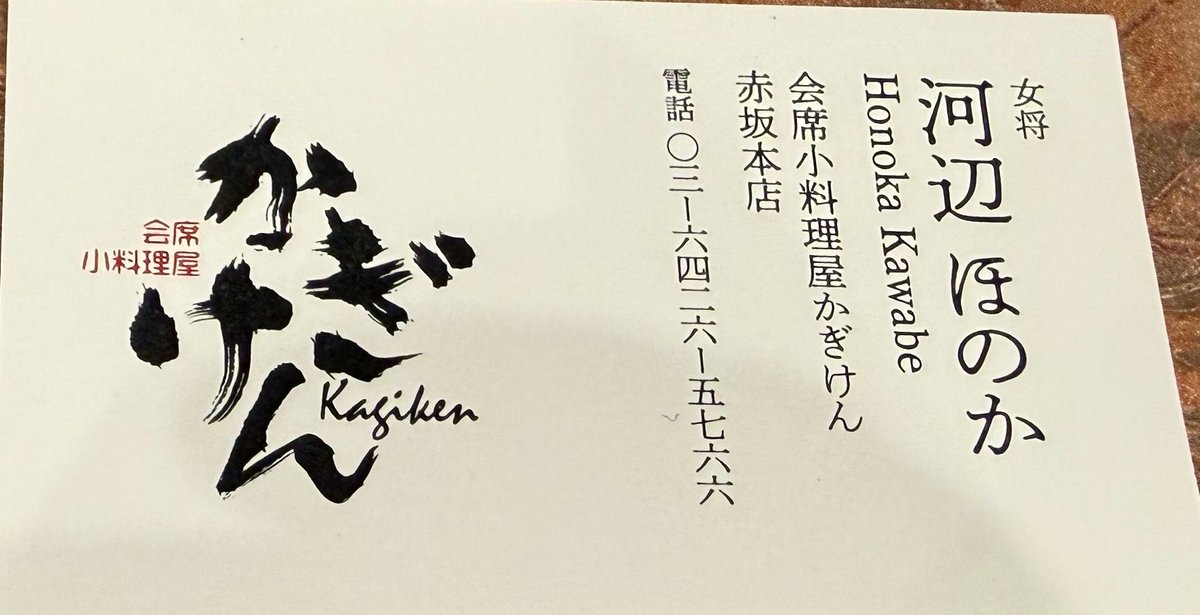 女将
河辺 ほのか
Honoka Kawabe
会席小料理屋かぎけん
赤坂本店
電話 〇三ー六四二六ー五七六六
かぎけん
Kagiken
会席
小料理屋